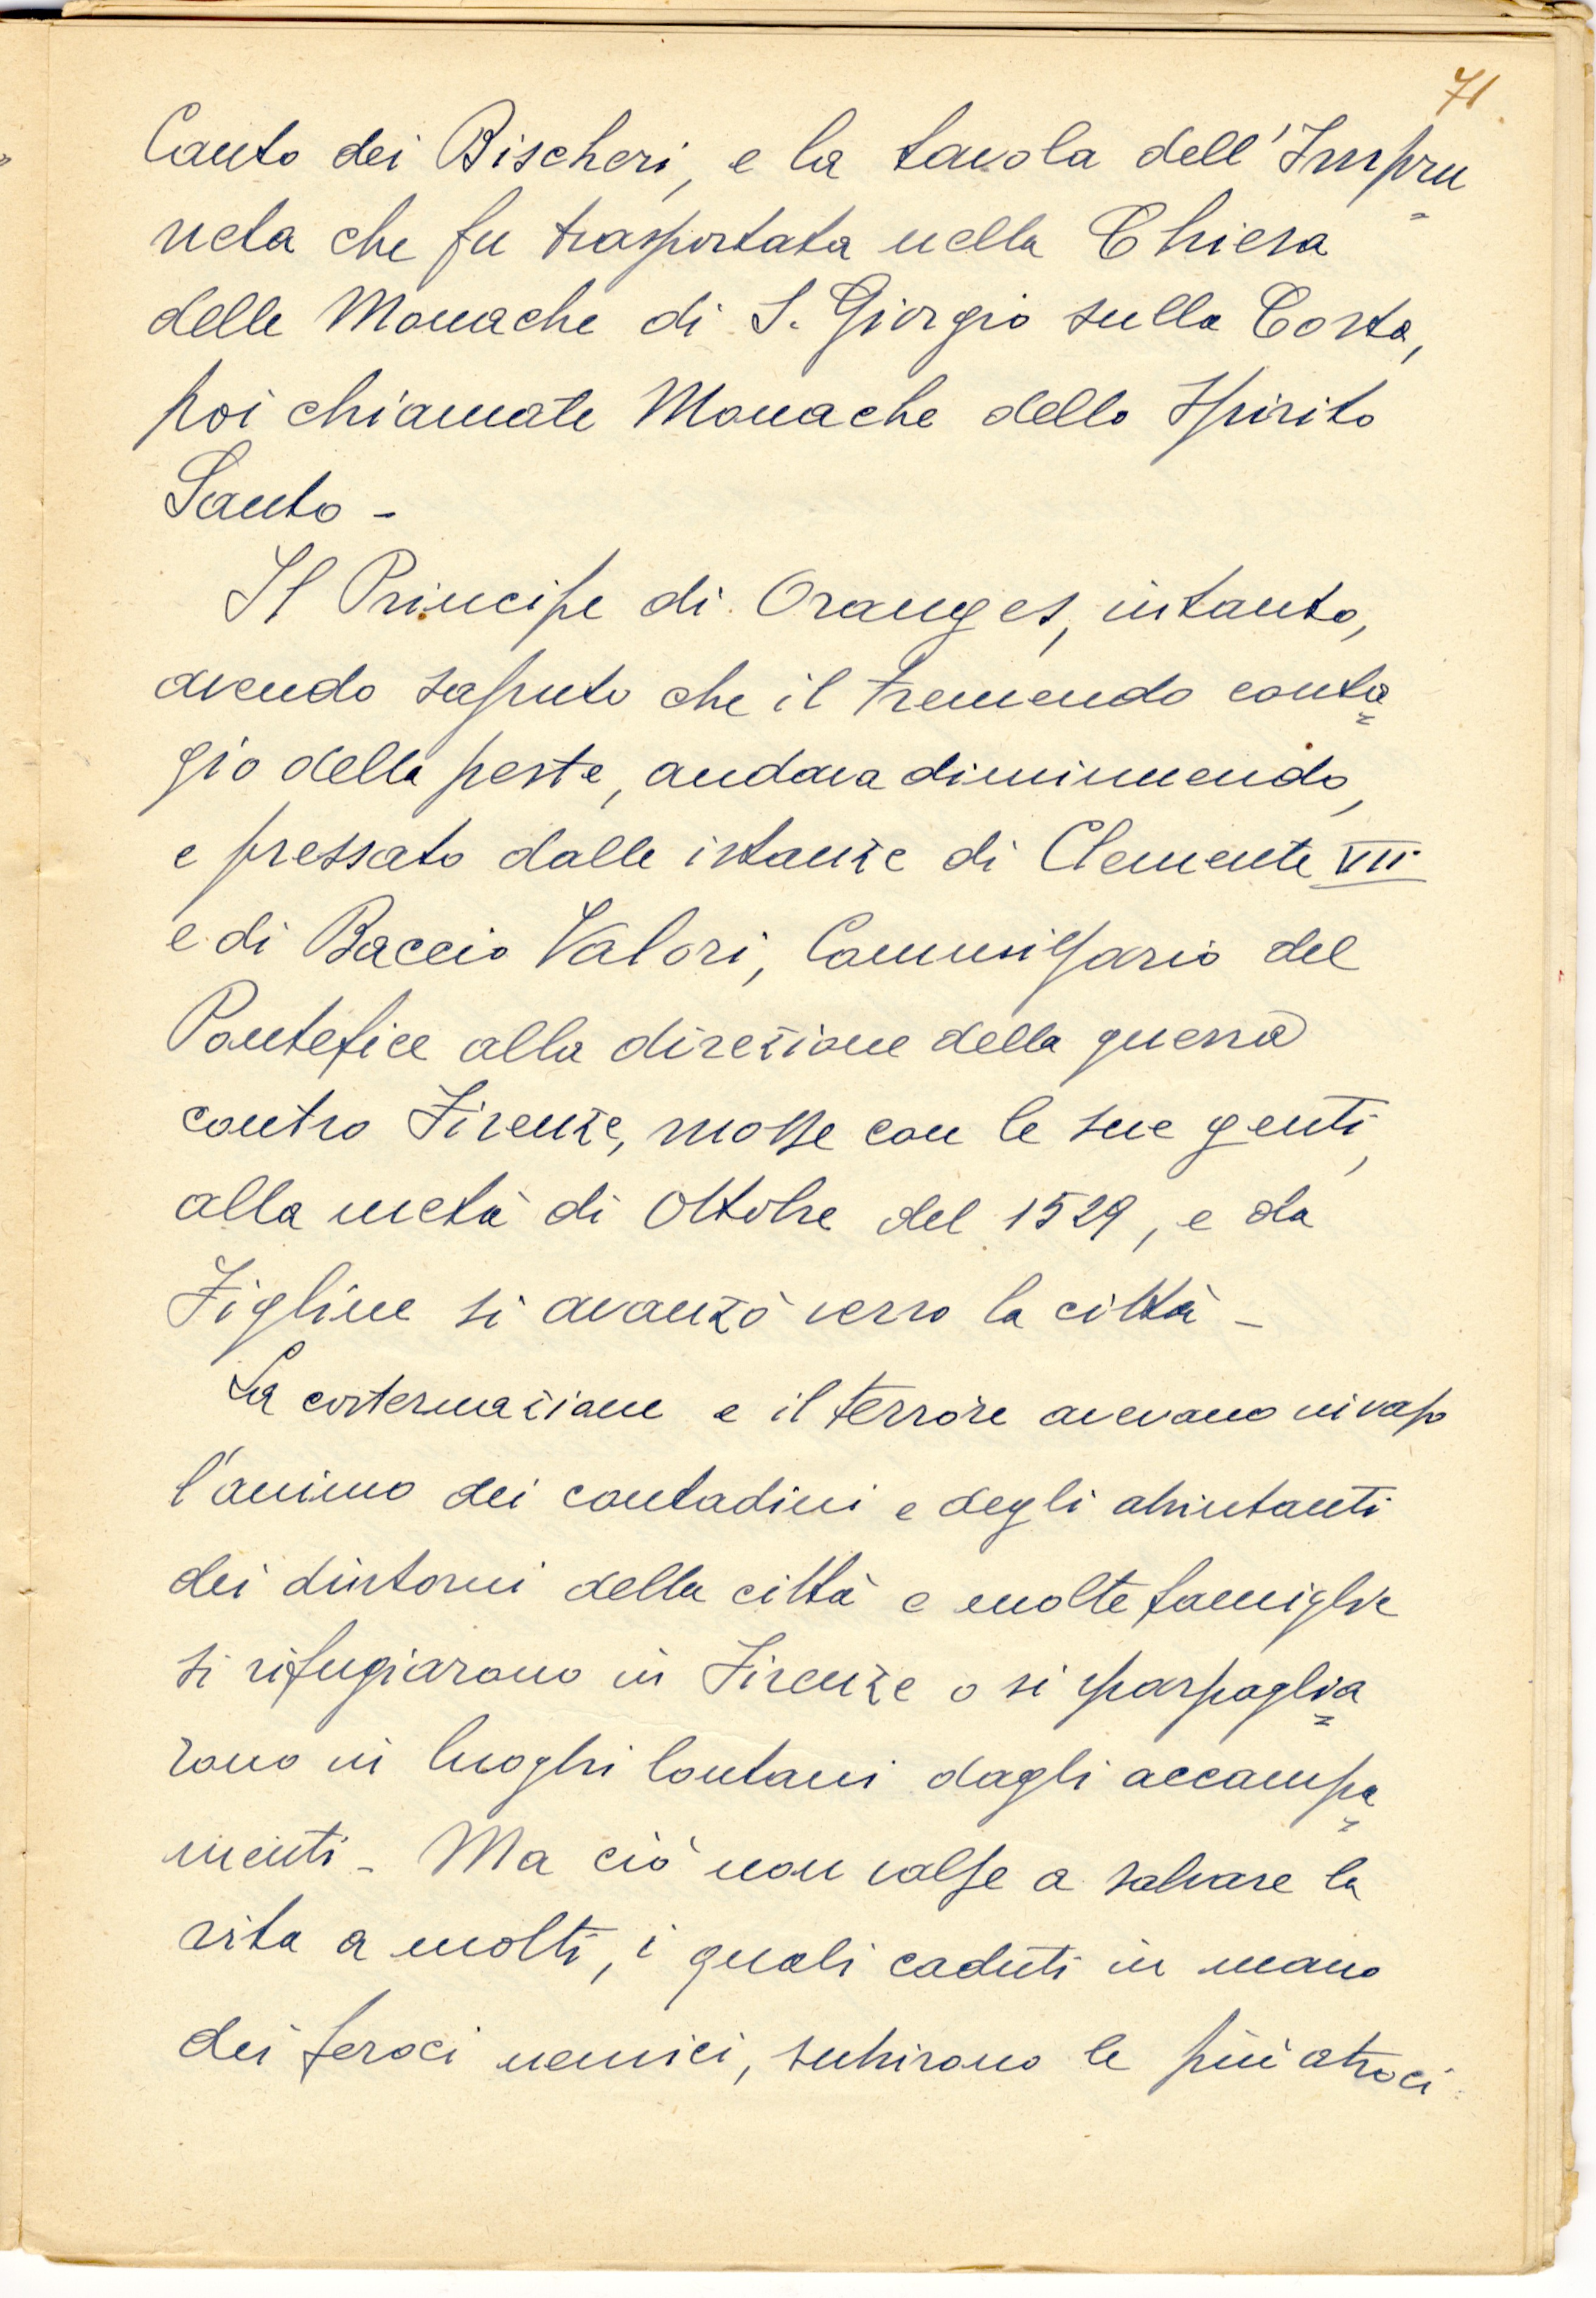 71
Canto dei Bischeri, e la tavola dell'Impru=
neta che fu trasportata nella Chiesa
delle Monache di S. Giorgio sulla Costa,
poi chiamate Monache dello Spirito
Santo -
Il Principe di Oranges, intanto,
avendo saputo che il tremendo conta=
gio della peste, andava diminuendo,
e pressato dalle istanze di Clemente VII.
e di Baccio Valori, Commissario del
Pontefice alla direzione della guerra
contro Firenze, mosse con le sue genti,
alla metà di Ottobre del 1529, e da
Figline si avanzò verso la città -
La costernazione e il terrore avevano invaso
l'animo dei contadini e degli abintanti
dei dintorni della città e molte famiglie
si rifugiarono in Firenze o si sparpaglia=
rono in luoghi lontani dagli accampa=
menti - Ma ciò non valse a salvare la
vita a molti, i quali caduti in mano
dei feroci nemici, subirono le più atroci